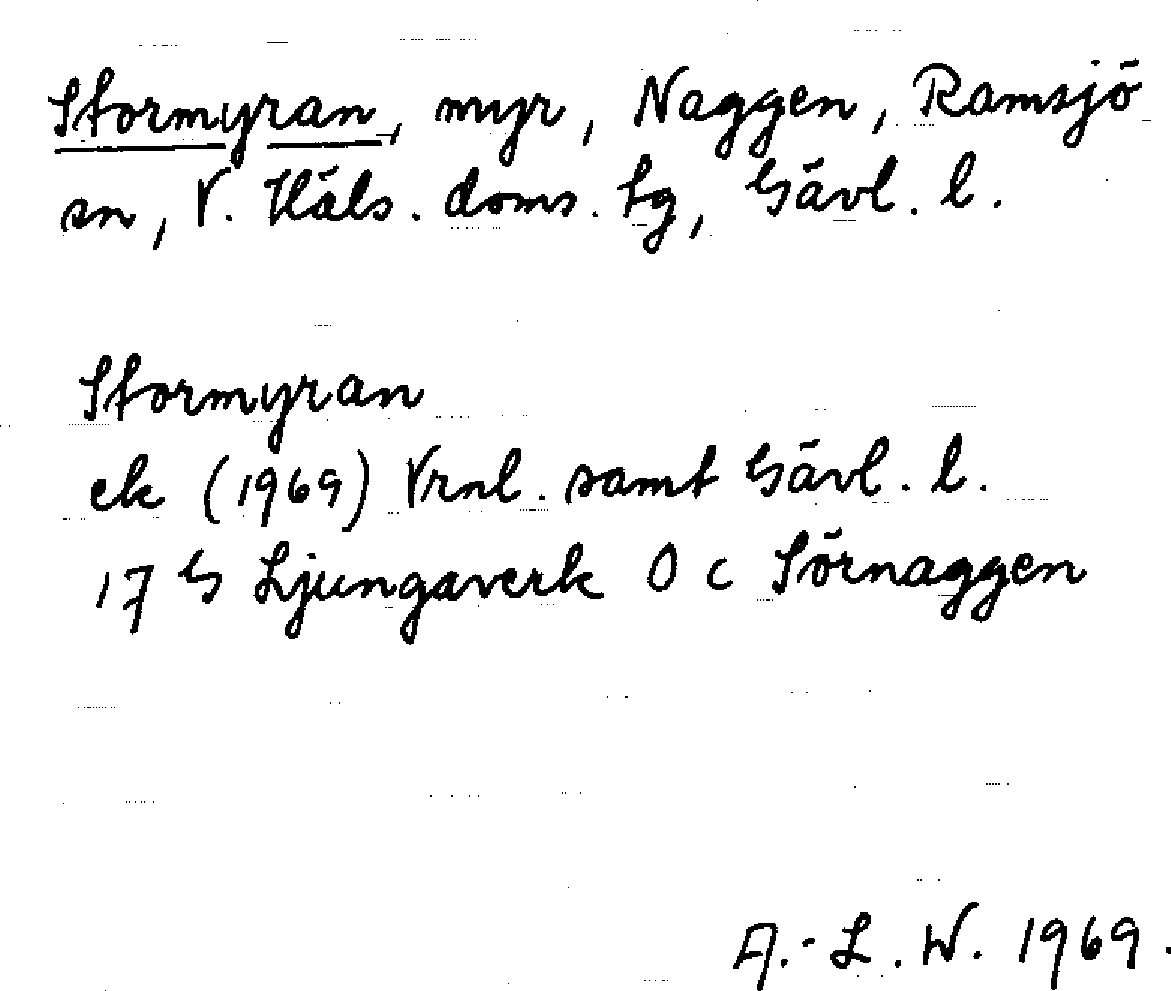 Stormyran, myr, Naggen, Ramsjö
sn, V. Häls. doms. tg, Gävl. l.
Stormyran
ek (1969) Vrnl. samt Gävl. l.
17 G Ljungaverk 0 c Sörnaggen
A.-L. W. 1969.